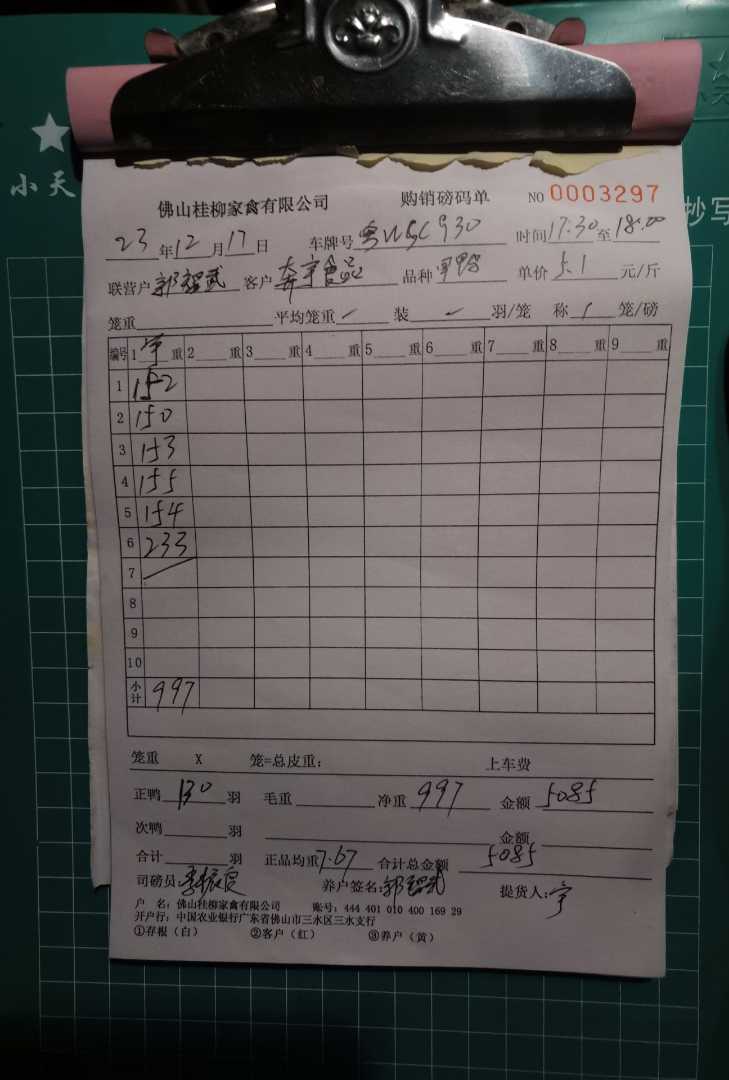 小天
抄写
佛山桂柳家禽有限公司 购销磅码单 NO 0003297
23年12月17日 车牌号 时间17:30至18:00
联营户 客户 食品 品种 单价5.1元/斤
笼重 平均笼重 装 羽/笼 称 笼/磅
编号 1 重 2 重 3 重 4 重 5 重 6 重 7 重 8 重 9 重
1 152
2 150
3 153
4 155
5 154
6 233
7
8
9
10
小计 997
笼重 X 笼=总皮重: 上车费
正鸭130羽 毛重 净重997 金额5085
次鸭 羽 金额
合计 羽 正品均重7.67 合计总金额5085
司磅员: 养户签名: 提货人:
户 名: 佛山桂柳家禽有限公司 账号: 444 401 010 400 169 29
开户行: 中国农业银行广东省佛山市三水区三水支行
①存根（白） ②客户（红） ③养户（黄）